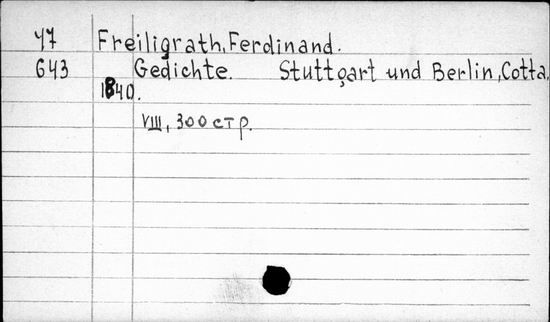 47 Freiligrath, Ferdinand.
643 Gedichte. Stuttgart und Berlin, Cotta,
1840.
VIII, 300 стр.